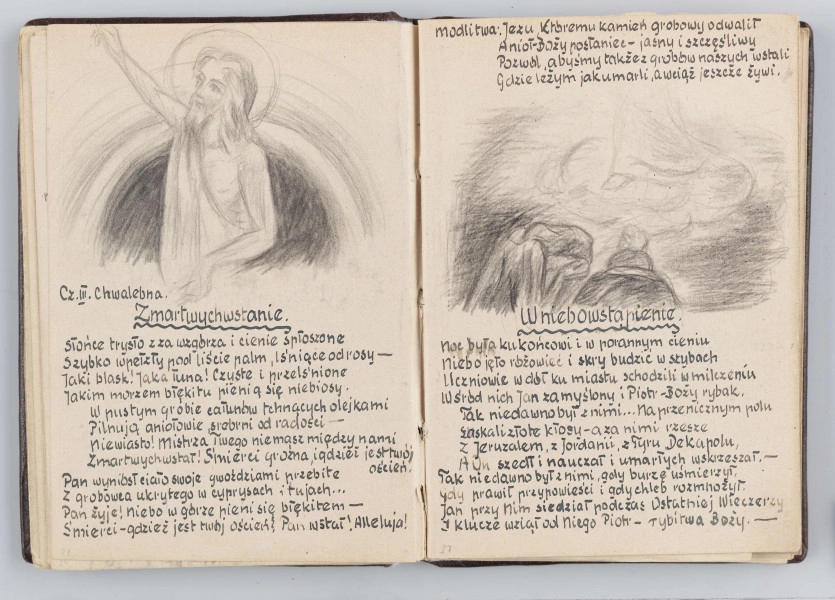 Cz. III. Chwalebna.
Zmartwychwstanie.
Słońce trysło zza wzgórza i cienie spłoszone
Szybko wpełzły pod liście palm, lśniące od rosy —
Jaki blask! Jaka łuna! Czyste i przelśnione
Jakim morzem błękitu pienią się niebiosy.
W pustym grobie całunów tchnących olejkami
Pilnują aniołowie srebrni od radości —
Niewiasto! Mistrza Twego niemasz między nami
Zmartwychwstał! Śmierci groźna, gdzież jest twój
oścień?
Pan wyniósł ciało swoje gwoździami przebite
Z grobowca ukrytego w cyprysach i tujach...
Pan żyje! Niebo w górze pieni się błękitem —
Śmierci – gdzież jest twój oścień? Pan wstał! Alleluja!
modlitwa: Jezu Któremu kamień grobowy odwalił
Anioł-Boży posłaniec – jasny i szczęśliwy
Pozwól, abyśmy także z grobów naszych wstali
Gdzie leżym jak umarli, a wciąż jeszcze żywi.
Wniebowstąpienie.
Noc była ku końcowi i w porannym cieniu
Niebo jęło różowieć i skry budzić w szybach
Uczniowie w dół ku miastu schodzili w milczeniu
Wśród nich Jan zamyślony i Piotr-Boży rybak.
Tak niedawno był z nimi... Na przenicznym polu
Łaskali złote kłosy – a za nimi rzesze
Z Jeruzalem, z Jordanii, z Tyru Dekapolu,
A On szedł i nauczał i umarłych wskrzeszał. —
Tak niedawno był z nimi, gdy burzę uśmierzył,
Gdy prawił przypowieści i gdy chleb rozmnożył.
Jan przy Nim siedział podczas Ostatniej Wieczerzy
I klucze wziął od Niego Piotr – rybitwa Boży. —